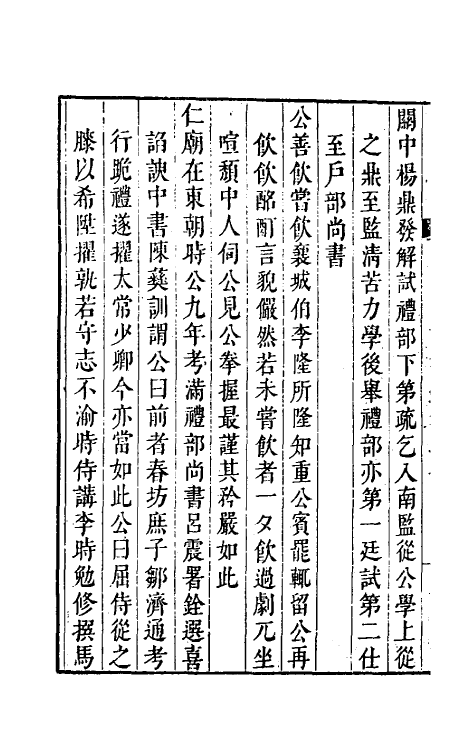 關中楊鼎發解試禮部下第疏乞入南監從公學上從
之鼎至監淸苦力學後舉禮部亦第一廷試第二仕
至戶部尚書
公善飮嘗飮襄城伯李隆所隆知重公賓罷輒留公再
飮飮酩酊言貌儼然若未嘗飮者一夕飮過劇兀坐
喧頽中人伺公見公拳握最謹其矜嚴如此
仁廟在東朝時公九年考滿禮部尚書呂震署銓選喜
諂諛中書陳蕤訓謂公曰前者春坊庶子鄒濟通考
行跪禮遂擢太常少卿今亦當如此公曰屈侍從之
膝以希陞擢孰若守志不渝時侍講李時勉修撰馬